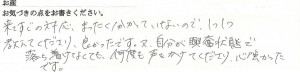 お産
お気づきの点をお書きください。
来てすぐの対応、まったく分かっていけないので、1つ1つ
教えてくださり、良かったです。又、自分が興奮状態で
落ち着けてなくても、何度も声をかけてくださり、心強かった
です。